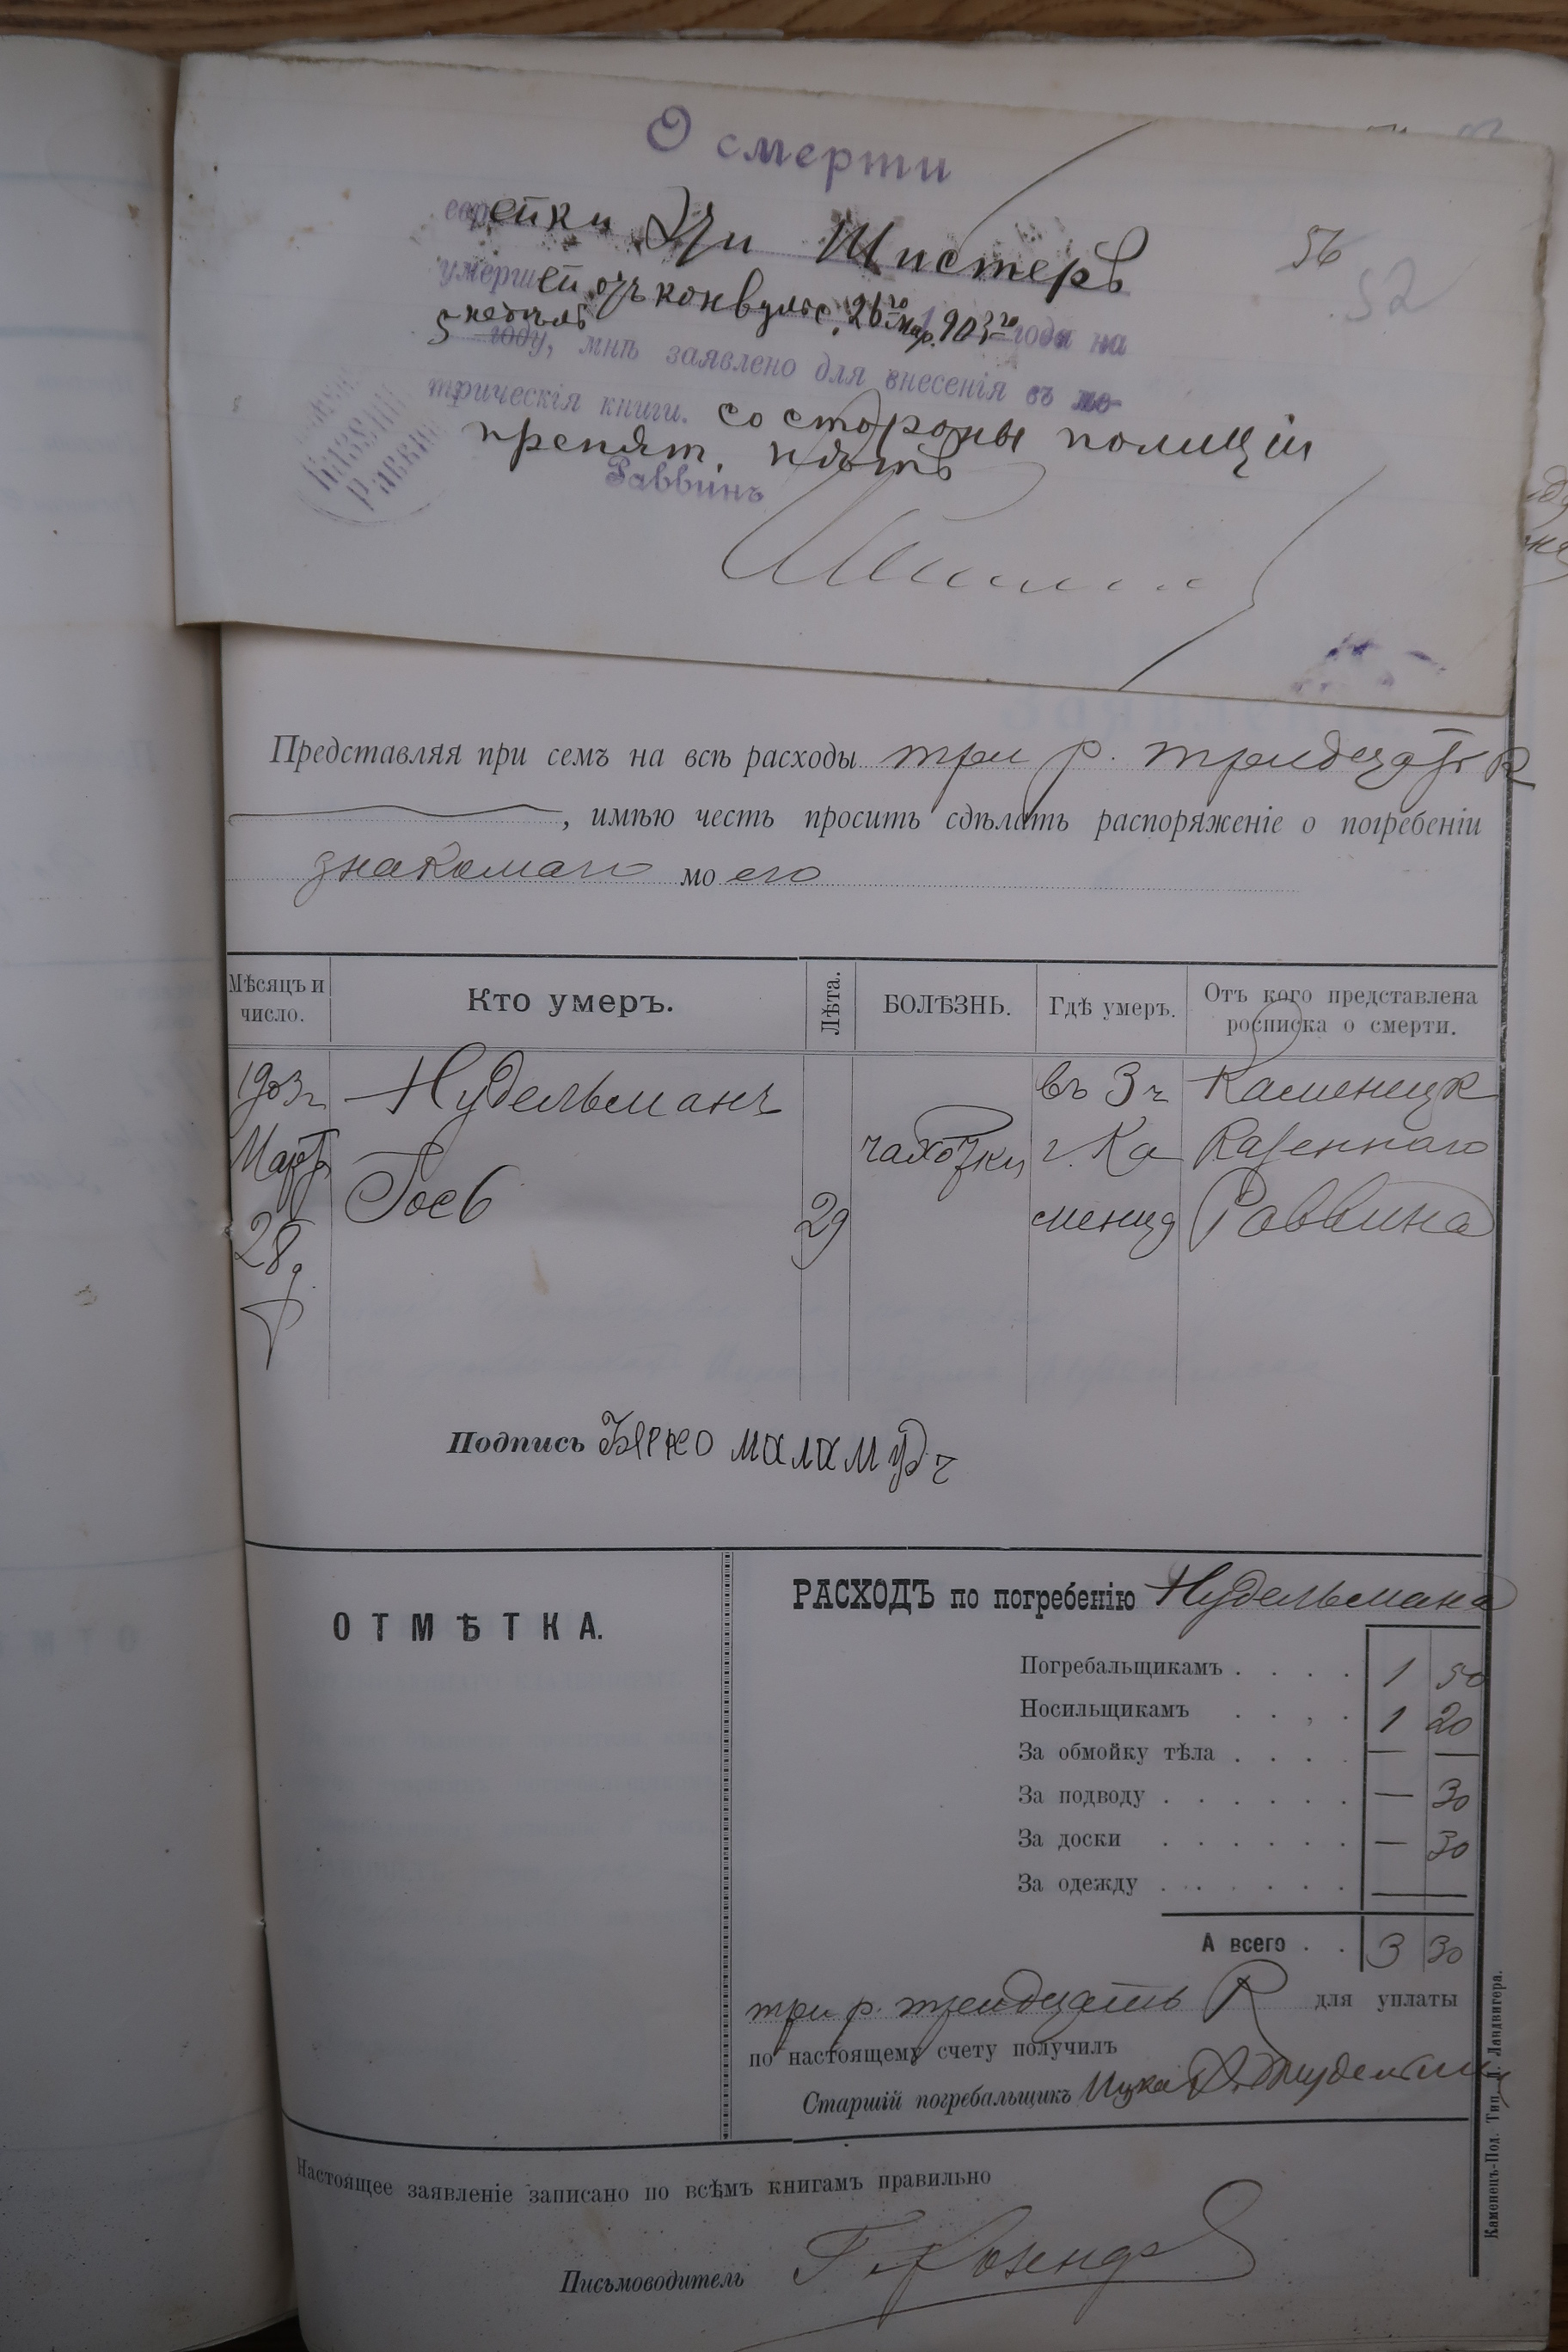 О смерти
еврейки Эти Шистеръ
56
52
умершей отъ конвульс. 26го Мар. 1903го года на
5 недѣлѣ
году, мнѣ заявлено для внесенія въ ме-
трическія книги. Со стороны полиціи
препят. нѣтъ
Раввинъ
КАЗЕН
РАВВИН
Представляя при семъ на всѣ расходы три р. тридцать к
, имѣю честь просить сдѣлать распоряженіе о погребеніи
знакомаго моего
Мѣсяцъ и число.
Кто умеръ.
Лѣта.
БОЛѢЗНЬ.
Гдѣ умеръ.
Отъ кого представлена росписка о смерти.
1903 г
Мартъ
28 д
Нудельманъ
Іосъ
29
чахотки
въ 3 ч
г. Ка
меница
Каменецк
Казеннаго
Раввина
Подпись Берко маламудъ
ОТМѢТКА.
РАСХОДЪ по погребенію Нудельмана
Погребальщикамъ . . . . 1 50
Носильщикамъ . . , . 1 20
За обмойку тѣла . . . . — —
За подводу . . . . . . — 30
За доски . . . . . . — 30
За одежду . . . . . . —
А всего . . 3 30
три р. тридцать К для уплаты
по настоящему счету получилъ
Старшій погребальщикъ Ицка
Настоящее заявленіе записано по всѣмъ книгамъ правильно
Письмоводитель
Каменецъ-Под. Тип. Д. Ландвигера.